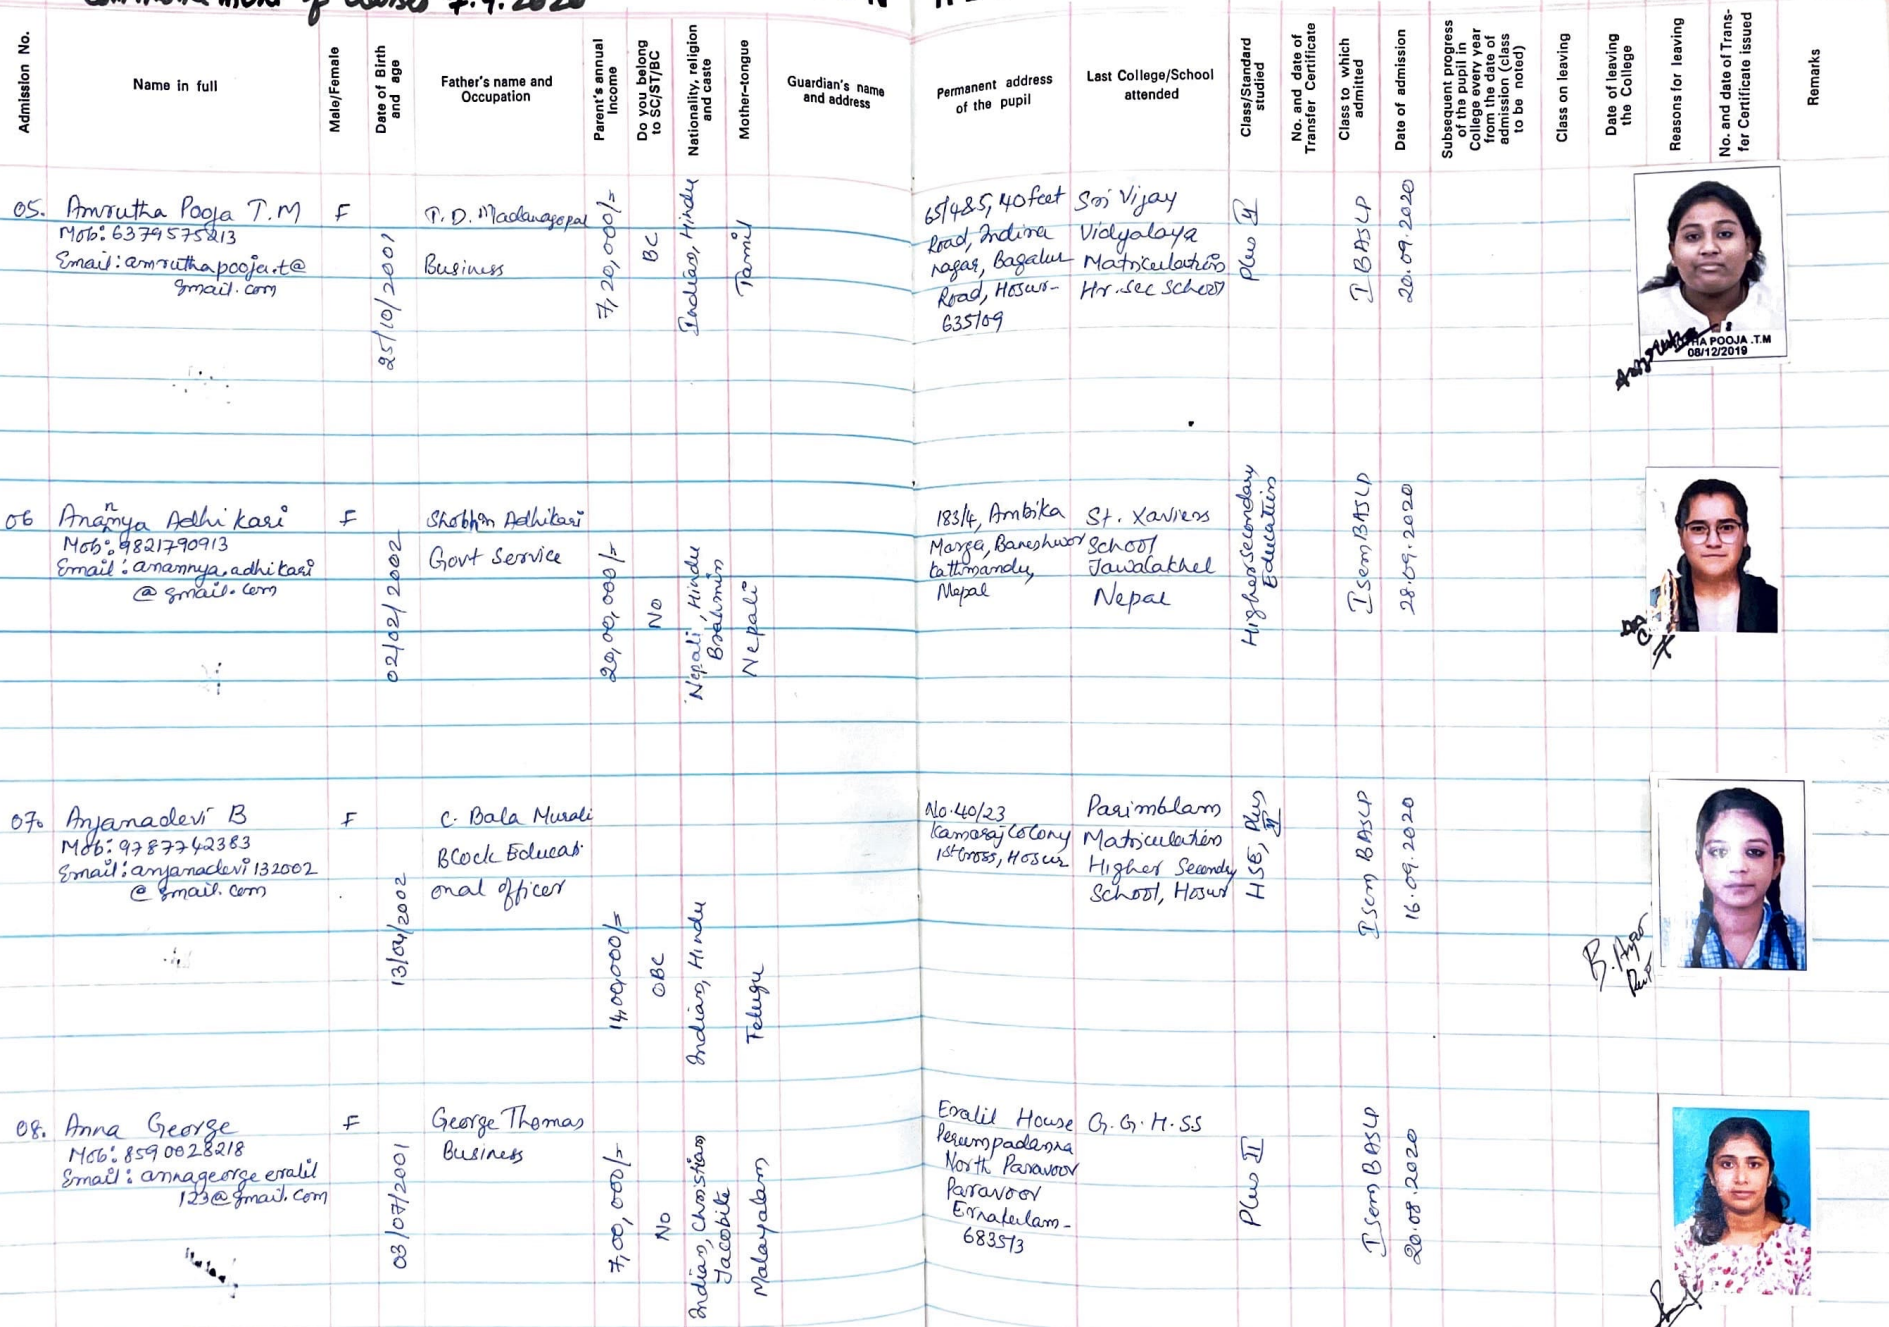 Commencement of classes 7.9.2020
Admission No.
Name in full
Male/Female
Date of Birth
and age
Father's name and
Occupation
Parent's annual
Income
Do you belong
to SC/ST/BC
Nationality, religion
and caste
Mother-tongue
Guardian's name
and address
Permanent address
of the pupil
Last College/School
attended
Class/Standard
studied
No. and date of
Transfer Certificate
Class to which
admitted
Date of admission
Subsequent progress
of the pupil in
College every year
from the date of
admission (class
to be noted)
Class on leaving
Date of leaving
the College
Reasons for leaving
No. and date of Trans-
fer Certificate issued
Remarks
05.
Amrutha Pooja T.M
Mob: 6379575213
Email: amruthapooja.t@
gmail.com
F
25/10/2001
T.D. Madanagopal
Business
7,20,000/=
BC
Indian, Hindu
Tamil
65/4&5, 40 feet
Road, Indira
nagar, Bagalur
Road, Hosur-
635109
Sri Vijay
Vidyalaya
Matriculation
Hr. Sec School
Plus II
I BASLP
20.09.2020
HA POOJA .T.M
08/12/2019
06
Anannya Adhikari
Mob: 9821790913
Email: anannya.adhikari
@ gmail.com
F
02/02/2002
Shobhan Adhikari
Govt Service
20,00,000/=
NO
Nepali, Hindu
Brahmin
Nepali
183/4, Ambika
Marga, Baneshwor
kathmandu,
Nepal
St. Xaviers
School
Jawalakhel
Nepal
Higher Secondary
Education
I sem BASLP
28.09.2020
07.
Anjanadevi B
Mob: 9787742383
Email: anjanadevi132002
@ gmail.com
F
13/04/2002
C. Bala Murali
Block Educati
onal officer
14,00,000/=
OBC
Indian, Hindu
Telugu
No.40/23
Kamaraj Colony
1st Cross, Hosur
Parimalam
Matriculation
Higher Secondry
School, Hosur
HSE, Plus
II
I sem BASLP
16.09.2020
08.
Anna George
Mob: 8590028218
Email: annageorge eralil
123@gmail.com
F
03/07/2001
George Thomas
Business
7,00,000/=
NO
Indian, Christian
Jacobite
Malayalam
Eralil House
Perumpadanna
North Paravoor
Paravoor
Ernakulam-
683513
G.G.H.SS
Plus II
I sem BASLP
20.08.2020